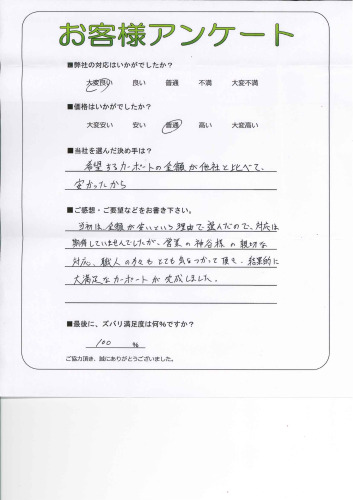 お客様アンケート
■弊社の対応はいかがでしたか?
大変良い 良い 普通 不満 大変不満
■価格はいかがでしたか?
大変安い 安い 普通 高い 大変高い
■当社を選んだ決め手は?
希望するカーポートの金額が他社と比べて、
安かったから
■ご感想・ご要望などをお書き下さい。
当初は金額が安いという理由で選んだので、対応は
期待していませんでしたが、営業の神谷様の親切な
対応、職人の方々もとても気をつかって頂き、結果的に
大満足なカーポートが完成しました。
■最後に、ズバリ満足度は何%ですか?
100 %
ご協力頂き、誠にありがとうございました。